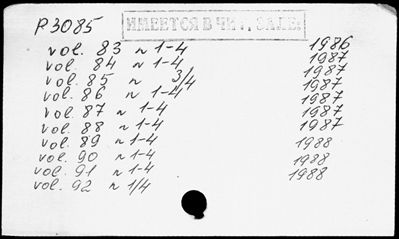 P3085
ИМЕЕТСЯ В ЧИТ. ЗАЛЕ.
vol. 83 n 1-4 1986
vol. 84 n 1-4 1987
vol. 85 n 3/4 1987
vol. 86 n 1-4 1987
vol. 87 n 1-4 1987
vol. 88 n 1-4 1987
vol. 89 n 1-4 1988
vol. 90 n 1-4 1988
vol. 91 n 1-4 1988
vol. 92 n 1/4